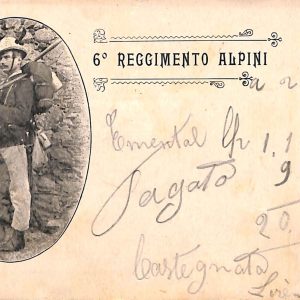 6° REGGIMENTO ALPINI
a 2
Emental 1.1
Pagato 9
20
Castegnato
Lire